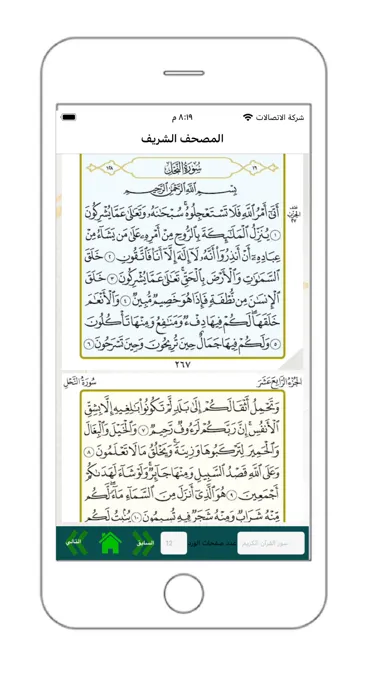 شركة الاتصالات ٨:١٩ م
المصحف الشريف
سورة النحل
بسم الله الرحمن الرحيم
أتى أمر الله فلا تستعجلوه سبحنه وتعلى عما يشركون
١ ينزل الملئكة بالروح من أمره على من يشاء من
عباده أن أنذروا أنه لا إله إلا أنا فاتقون ٢ خلق
السموت والأرض بالحق تعلى عما يشركون ٣ خلق
الإنسن من نطفة فإذا هو خصيم مبين ٤ والأنعم
خلقها لكم فيها دفء ومنفع ومنها تأكلون
٥ ولكم فيها جمال حين تريحون وحين تسرحون ٦
٢٦٧
الجزء الرابع عشر سورة النحل
وتحمل أثقالكم إلى بلد لم تكونوا بلغيه إلا بشق
الأنفس إن ربكم لرءوف رحيم ٧ والخيل والبغال
والحمير لتركبوها وزينة ويخلق ما لا تعلمون ٨
وعلى الله قصد السبيل ومنها جائر ولو شاء لهدىكم
أجمعين ٩ هو الذي أنزل من السماء ماء لكم
منه شراب ومنه شجر فيه تسيمون ١٠ ينبت لكم
سور القرآن الكريم عدد صفحات 12 السابق التالي